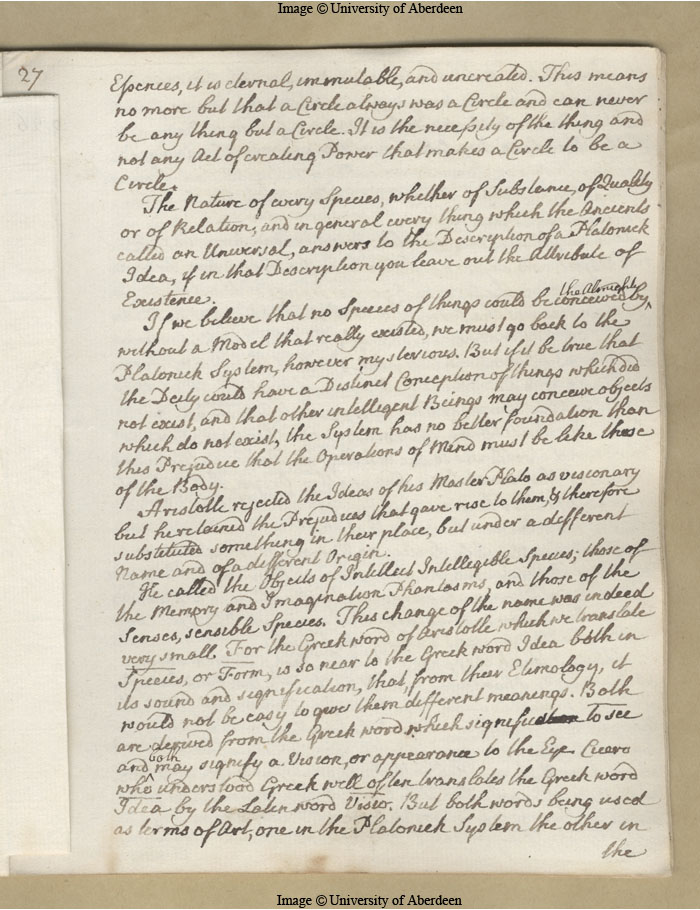 Image © University of Aberdeen
27
Essences, it is eternal, immutable, and uncreated. This means
no more but that a Circle always was a Circle and can never
be any thing but a Circle. It is the necessity of the thing and
not any Act of creating Power that makes a Circle to be a
Circle.
The Nature of every Species, whether of Substance, of Quality
or of Relation, and in general every thing which the Ancients
called an Universal, answers to the Description of a Platonick
Idea, if in that Description you leave out the Attribute of
Existence.
the Almighty
If we believe that no Species of things could be conceived by
without a Model that really existed, we must go back to the
Platonick System, however mysterious. But if it be true that
the Deity could have a Distinct Conception of things which did
not exist, and that other intelligent Beings may conceive objects
which do not exist, the System has no better foundation than
this Prejudice that the Operations of Mind must be like those
of the Body.
Aristotle rejected the Ideas of his Master Plato as visionary
but he retained the Prejudices that gave rise to them, & therefore
substituted something in their place, but under a different
Name and of a different Origin.
He called the Objects of Intellect Intelligible Species; those of
the Memory and Imagination Phantasms, and those of the
Senses, sensible Species. This change of the name was indeed
very small. For the Greek word of Aristotle which we translate
Species, or Form, is so near to the Greek word Idea both in
its sound and signification, that, from their Etimology, it
would not be easy to give them different meanings. Both
are derived from the Greek word which signifies to see
both
and may signify a Vision, or appearance to the Eye. Cicero
who understood Greek well often translates the Greek word
Idea by the Latin word Visio. But both words being used
as terms of Art, one in the Platonick System the other in
the
Image © University of Aberdeen